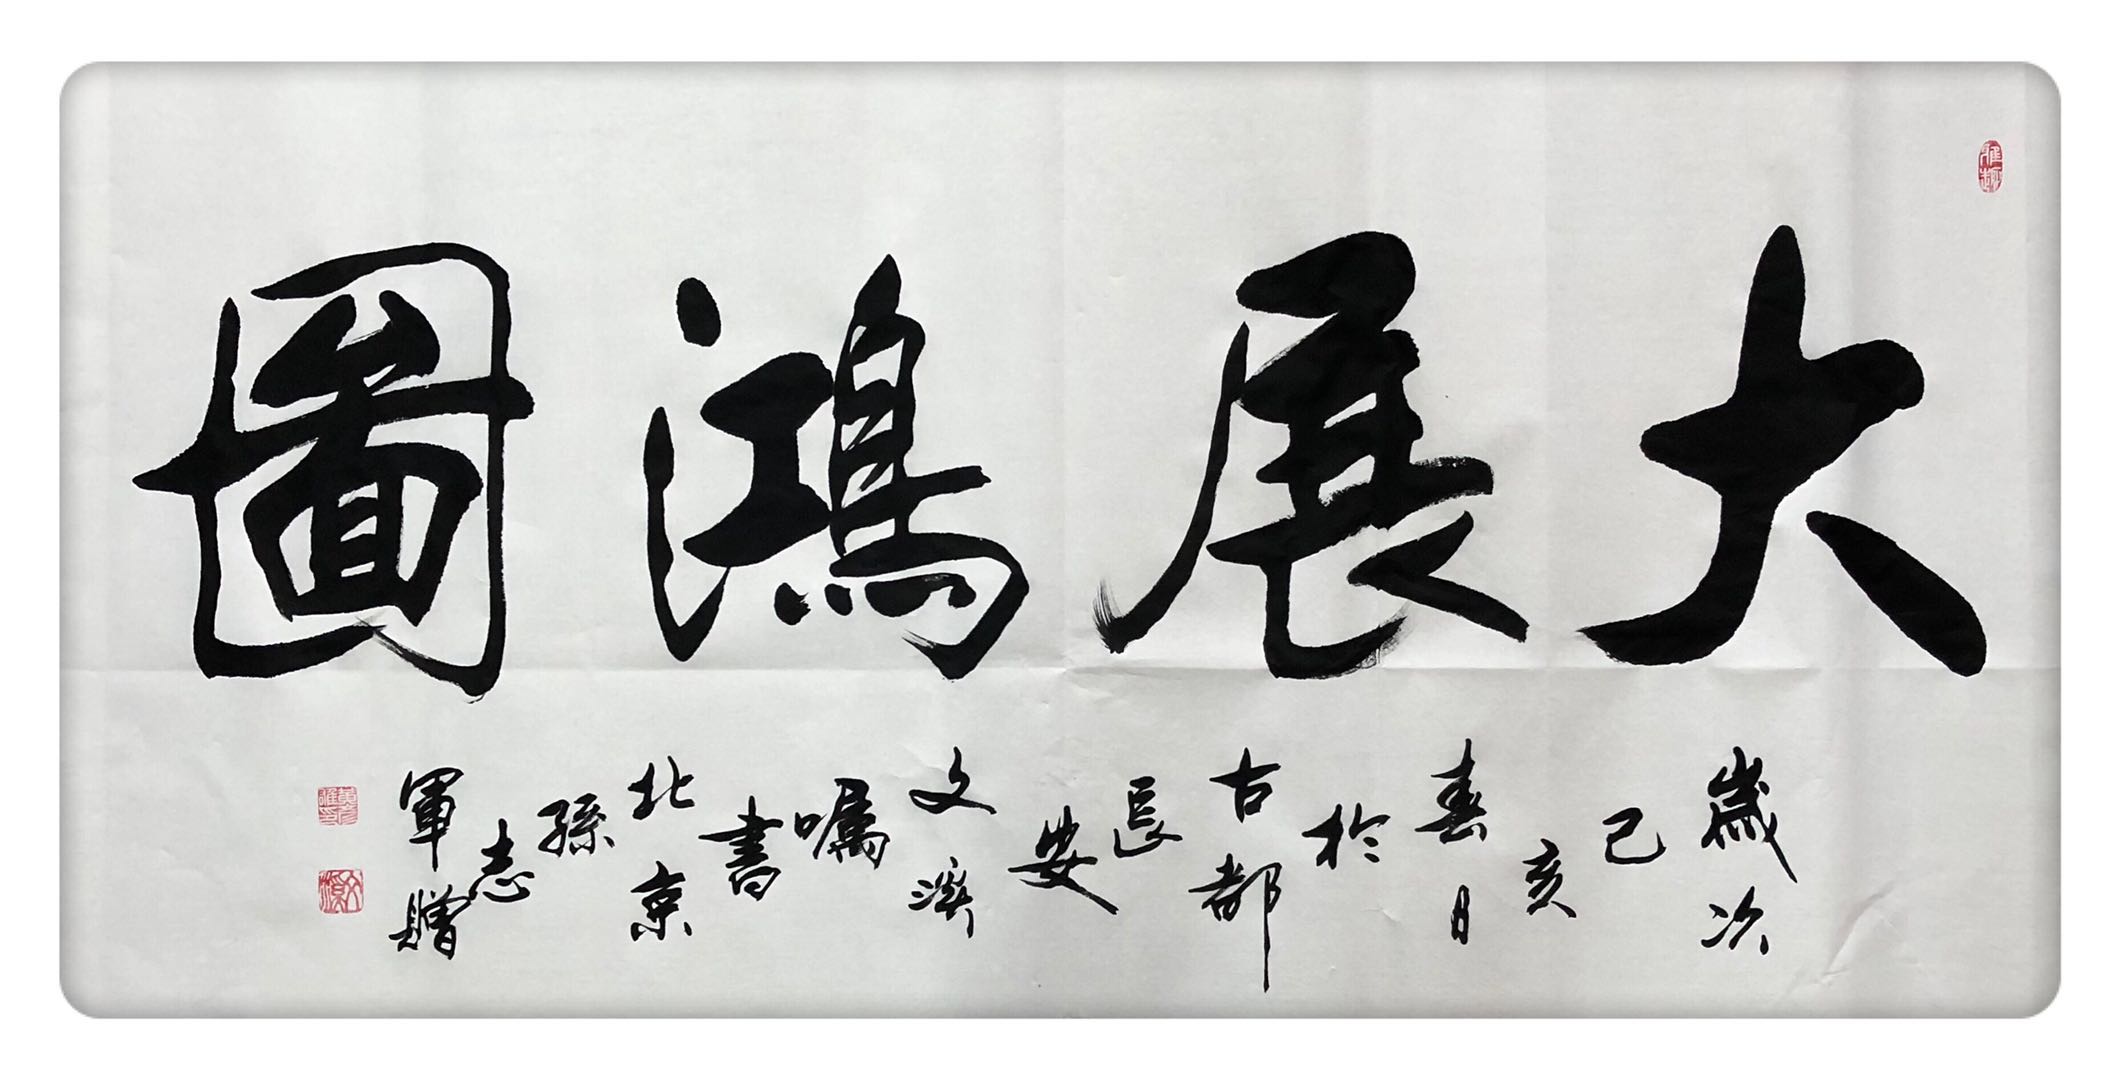 大展鴻圖
歲次己亥春日於古都長安文濱囑書北京孫志軍贈